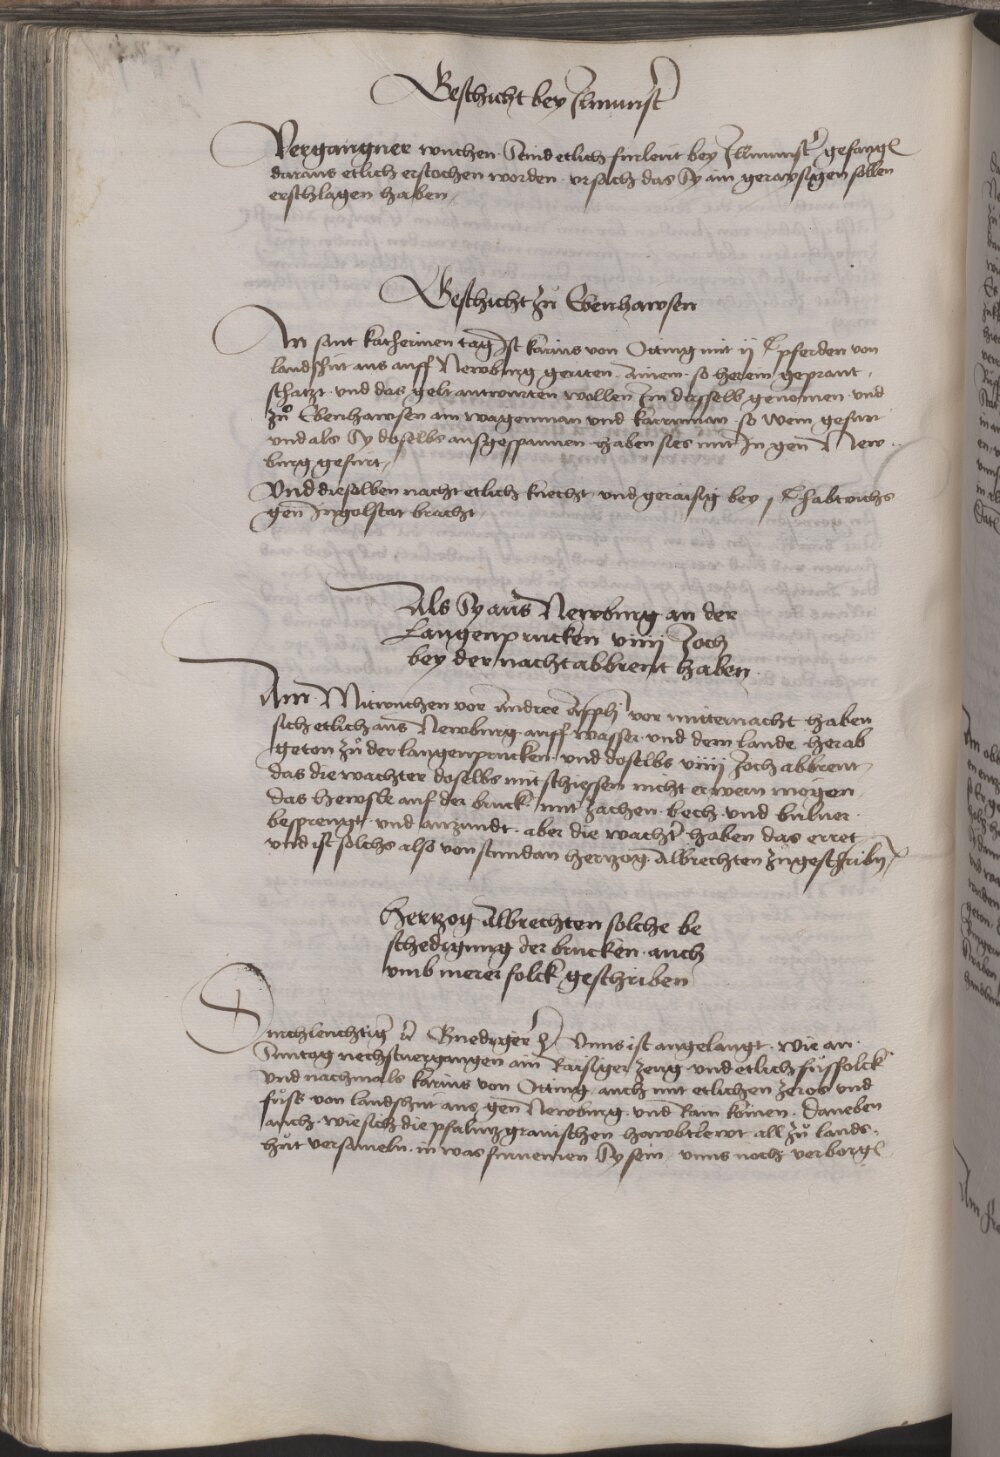 Beschicht bey Ilmunst͛
Vergangner wuchen. Sind etlich furlewt bey Illmunst͛ gefangen
daraus etlich erstochen worden. vrsach das Sy ain geraysigen sollen
erschlagen haben
Beschicht zu Ebenhawsen
An sant katherinen tag Ist karius von Otting mit ij C pferden von
landshut aus auff Newburg geriten. Ainem. so herein geprant
schatzt. vnd das gelt antwurten wollen Im dasselb genomen. vnd
zů Ebenhawsen ain wagenman vnd karrnman. so wein gefurt
vnd als Sy doselbs ausgespannen haben sies mit In gen New
burg gefurt
Vnd dieselben nacht etlich knecht vnd geraisig bey j C habrichs
gen Ingolstat bracht
Als Sy aus Newburg an der
Langenprucken viiij Joch
bey der nacht abbrent haben
Am Mitwuchen vor Andree vor mitternacht haben
sich etlich aus Newburg auff wasser vnd dem lande herab
geton zů der langenprucken vnd doselbs viiij Joch abbrent
das die wachter doselbs mit schiessen nicht erwern mogen
das hewsle auf der bruck mit zachen. bech. vnd bulver
besprengt vnd anzundt. aber die wacht͛ haben das erret
vnd ist solchs also von stundan hertzog Albrechten zugeschriben
Hertzog Albrechten solche be
schedigung der brucken auch
vmb merer folck geschriben
Durchleuchtig͛ Gnediger h͛ Vnns ist angelangt. wie an
Suntag nechstuergangen ain Raisiger zeug vnd etlich fůssfolck
vnd nachmals karius von Otting. auch mit etlichen zeros vnd
fůss von landshut aus gen Newburg vnd Rain komen. Daneben
auch wie sich die pfaltzgrauischen hawbtlewt all zů lands
hůt versameln. in was furnemen Sy sein vnns noch verborgen